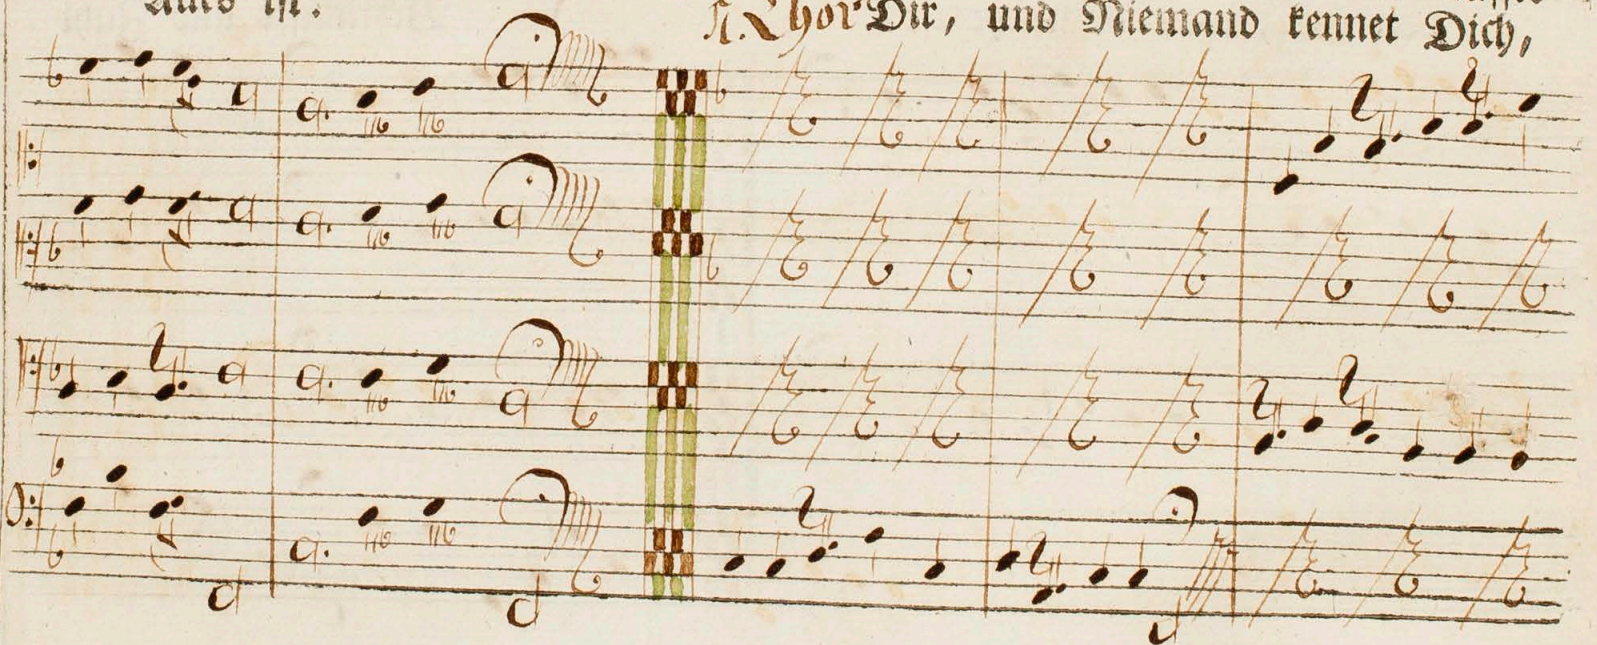 Alles ist.
Chor Dir, und Niemand kennet Dich,